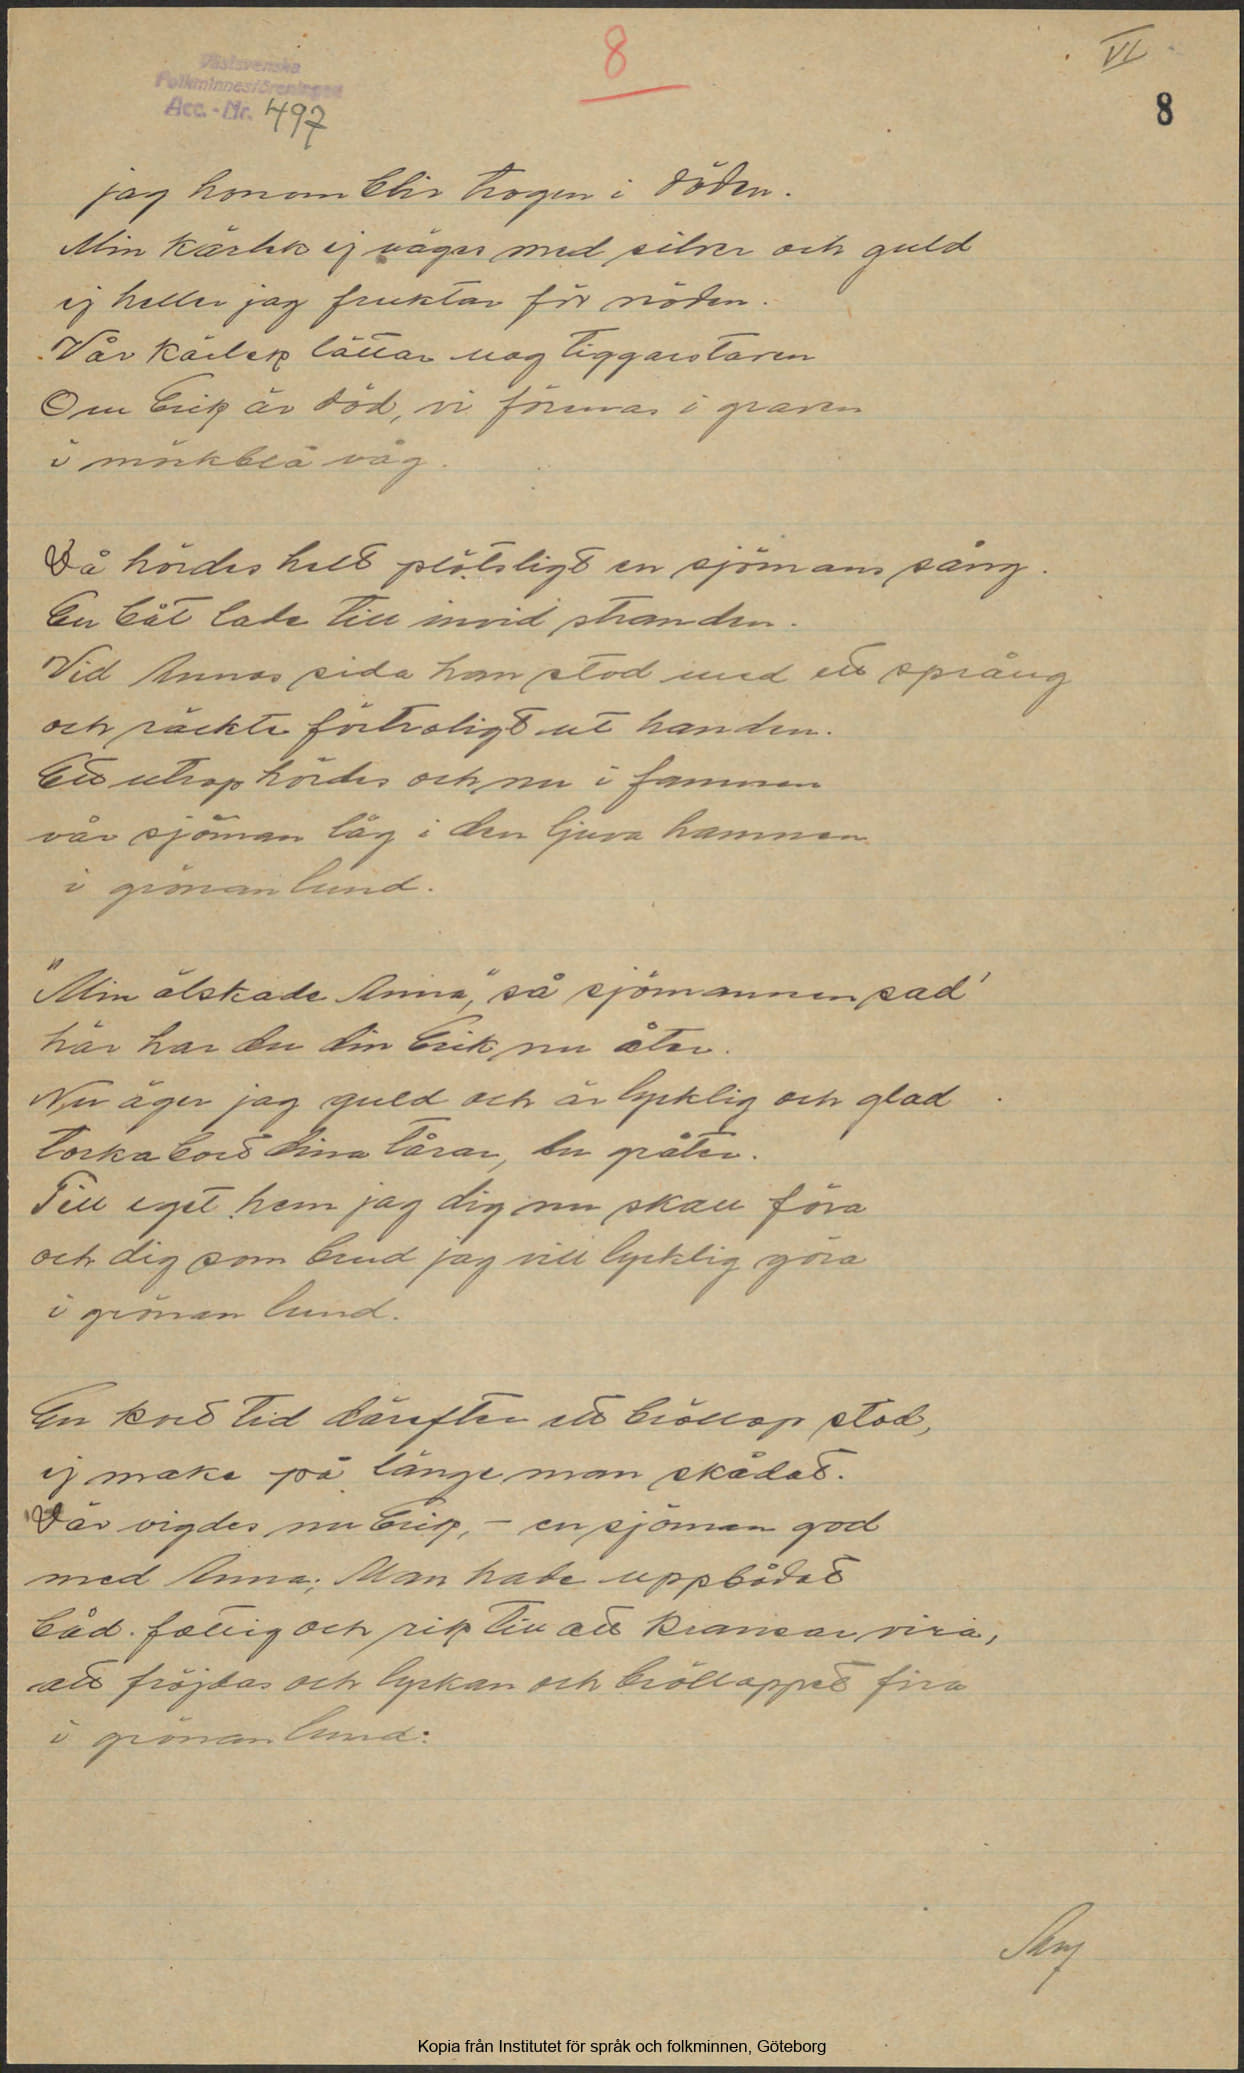 8
VI
Västsvenska
Folkminnesföreningen
Acc.-Nr. 497
8
jag honom blir trogen i döden.
Min kärlek ej väges med silver och guld
ej heller jag fruktar för nöden.
Vår kärlek lättar nog tiggarstaven
Om Erik är död, vi förenas i graven
i mörkblå våg.
Då hördes helt plötsligt en sjömans sång.
En båt lade till invid stranden.
Vid Annas sida han stod med ett språng
och räckte förtroligt ut handen.
Ett utrop hördes och nu i famnen
vår sjöman låg i den ljuva hamnen
i grönan lund.
"Min älskade Anna", så sjömannen sad'
här har du din Erik nu åter.
Nu äger jag guld och är lycklig och glad
torka bort dina tårar, du gråter.
Till eget hem jag dig nu skall föra
och dig som brud jag vill lycklig göra
i grönan lund.
En kort tid därefter ett bröllop stod,
ej make på länge man skådat.
Där vigdes nu Erik, - en sjöman god
med Anna; Man hade uppbådat
båd. fattig och rik till att kransar vira,
att fröjdas och lyckan och brölloppet fira
i grönan lund.
Kopia från Institutet för språk och folkminnen, Göteborg